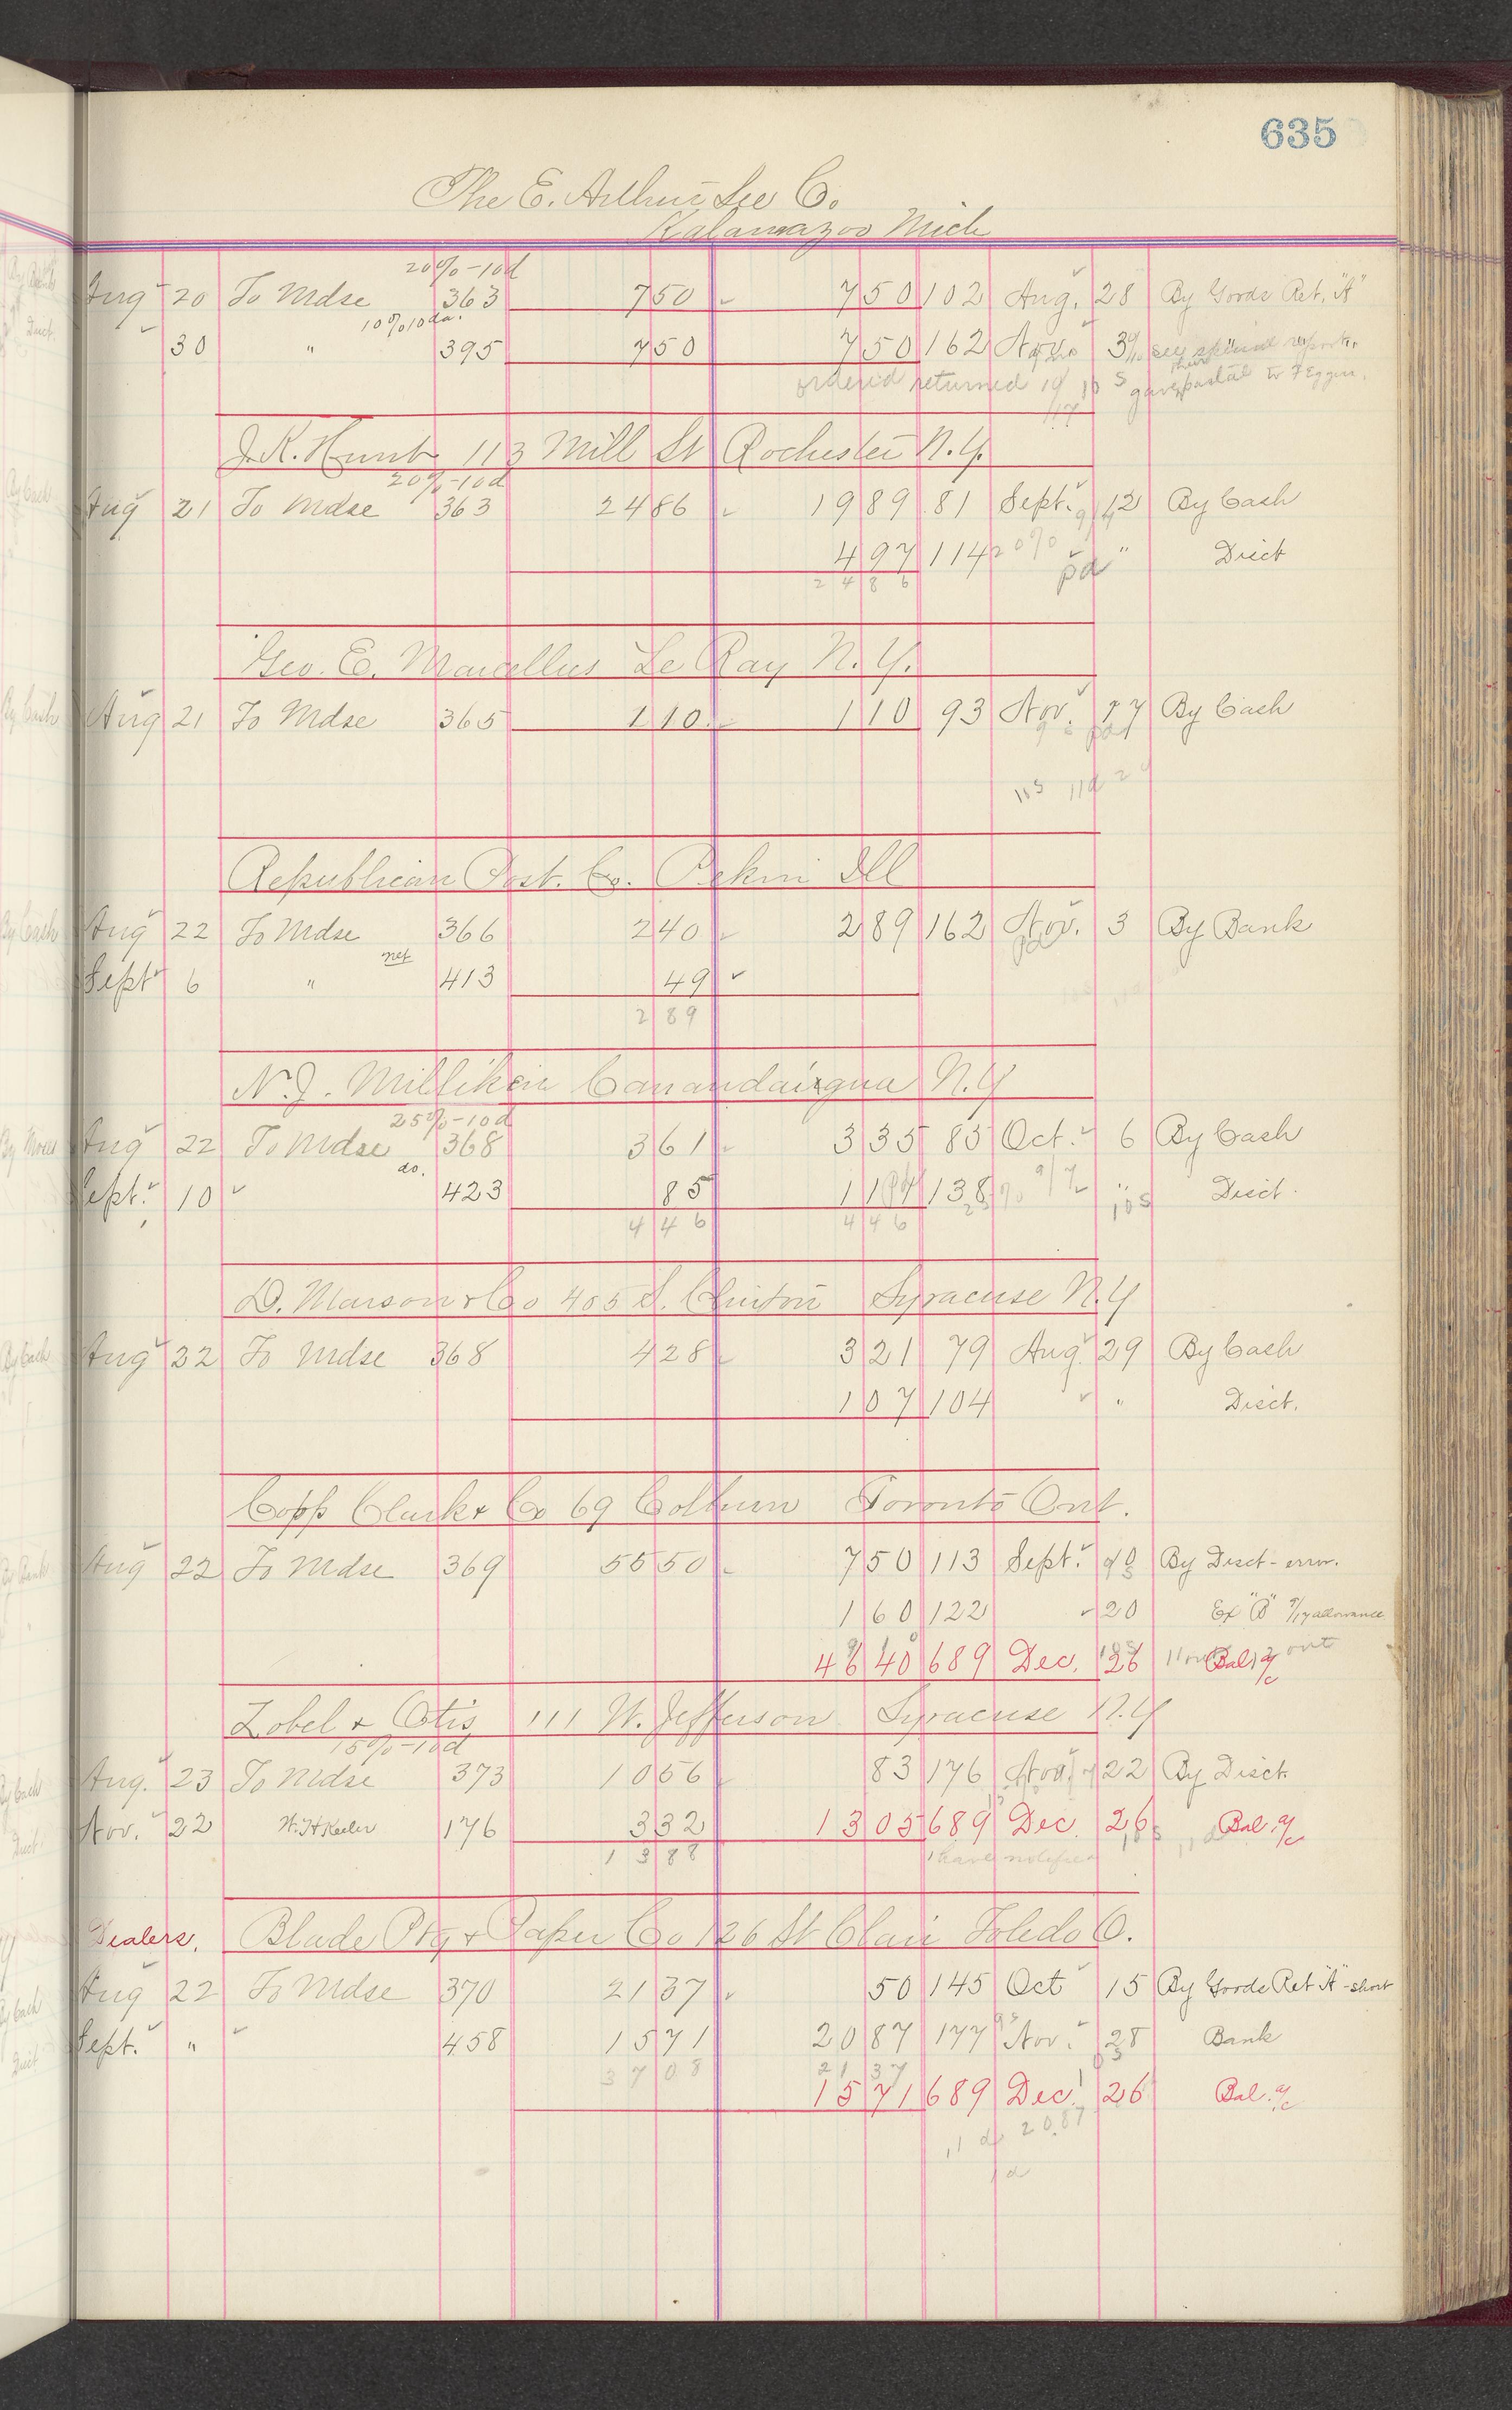 635
The E. Arthur Lee Co.
Kalamazoo Mich
20%-10d
Aug 20 To Mdse 363 7 50 7 50 102 Aug. 28 By Goods Ret. "A"
10% 10 da.
30 " 395 7 50 7 50 162 Nov. 3 see special report
ordered returned gave postal to F Eggen.
J. K. Hunt 113 Mill St Rochester N.Y.
20%-10d
Aug 21 To Mdse 363 24 86 19 89 81 Sept. 12 By Cash
4 97 114 20% pd " Disct
24 86
Geo. E. Marcellus Le Ray N.Y.
Aug 21 To Mdse 365 1 10 1 10 93 Nov. 17 By Cash
11s 11d 29
Republican Post. Co. Pekin Ill
Aug 22 To Mdse 366 2 40 2 89 162 Nov. 3 By Bank
pd
net
Sept 6 " 413 49
2 89
N. J. Milliken Canandaigua N.Y
25%-10d
Aug 22 To Mdse 368 3 61 3 35 85 Oct. 6 By Cash
do.
Sept. 10 423 85 1 11 138 " Disct.
10s
4 46 4 46
D. Mason & Co 405 S. Clinton Syracuse N.Y
Aug 22 To Mdse 368 4 28 3 21 79 Aug 29 By Cash
1 07 104 " Disct.
Copp Clark & Co 69 Colburn Toronto Ont.
Aug 22 To Mdse 369 55 50 7 50 113 Sept. 10 By Disct - error.
1 60 122 20 Ex "B" 9/17 allowance
46 40 689 Dec. 26 Bal. a/c
out
Zobel & Otis 111 W. Jefferson Syracuse N.Y
15%-10d
Aug. 23 To Mdse 373 10 56 83 176 Nov. 22 By Disct.
Nov. 22 W. H Keeler 176 3 32 13 05 689 Dec. 26 Bal. a/c
13 88 have notified
Dealers. Blade Ptg & Paper Co 126 St Clair Toledo O.
Aug 22 To Mdse 370 21 37 50 145 Oct 15 By Goods Ret "A" - short
Sept. " 458 15 71 20 87 177 Nov. 28 Bank
37 08 21 37
15 71 689 Dec. 26 Bal. a/c
11 d 20.87
1 d